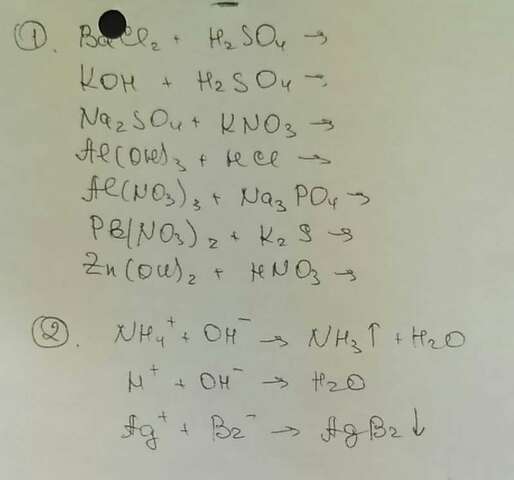 ①. BaCl₂ + H₂SO₄ →
KOH + H₂SO₄ →
Na₂SO₄ + KNO₃ →
Al(OH)₃ + HCl →
Al(NO₃)₃ + Na₃PO₄ →
PB(NO₃)₂ + K₂S →
Zn(OH)₂ + HNO₃ →
②. NH₄⁺ + OH⁻ → NH₃↑ + H₂O
H⁺ + OH⁻ → H₂O
Ag⁺ + Br⁻ → AgBr↓